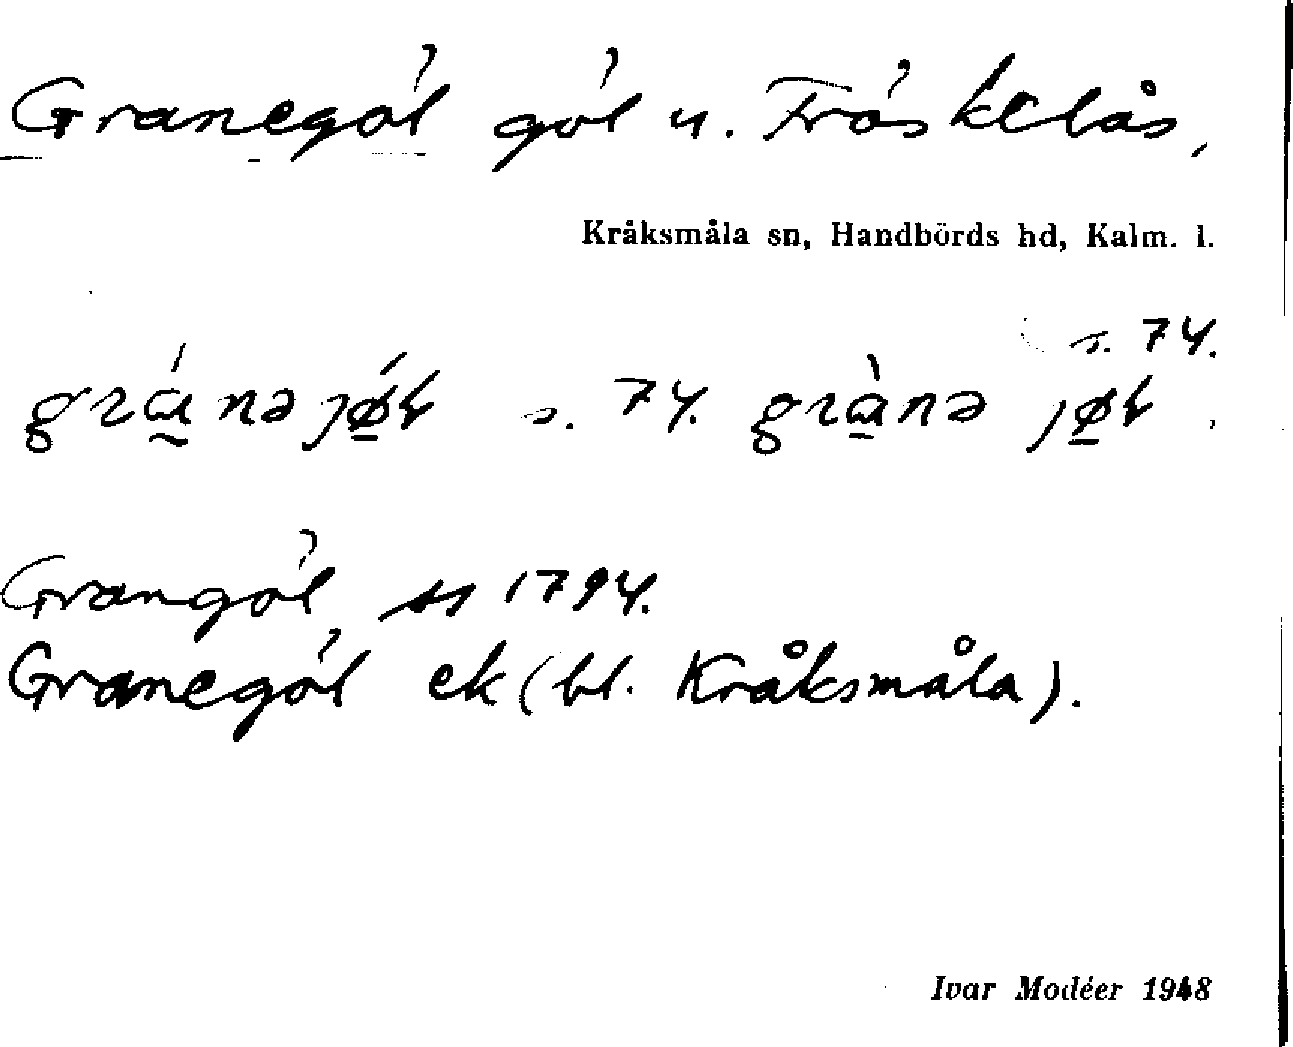 Granegöl göl u. Fröskelås,
Kråksmåla sn, Handbörds hd, Kalm. l.
s. 74.
gránəjøl s. 74. grànə jøl.
Grangöl, ss 1794.
Granegöl ek (bl. Kråksmåla).
Ivar Modéer 1948